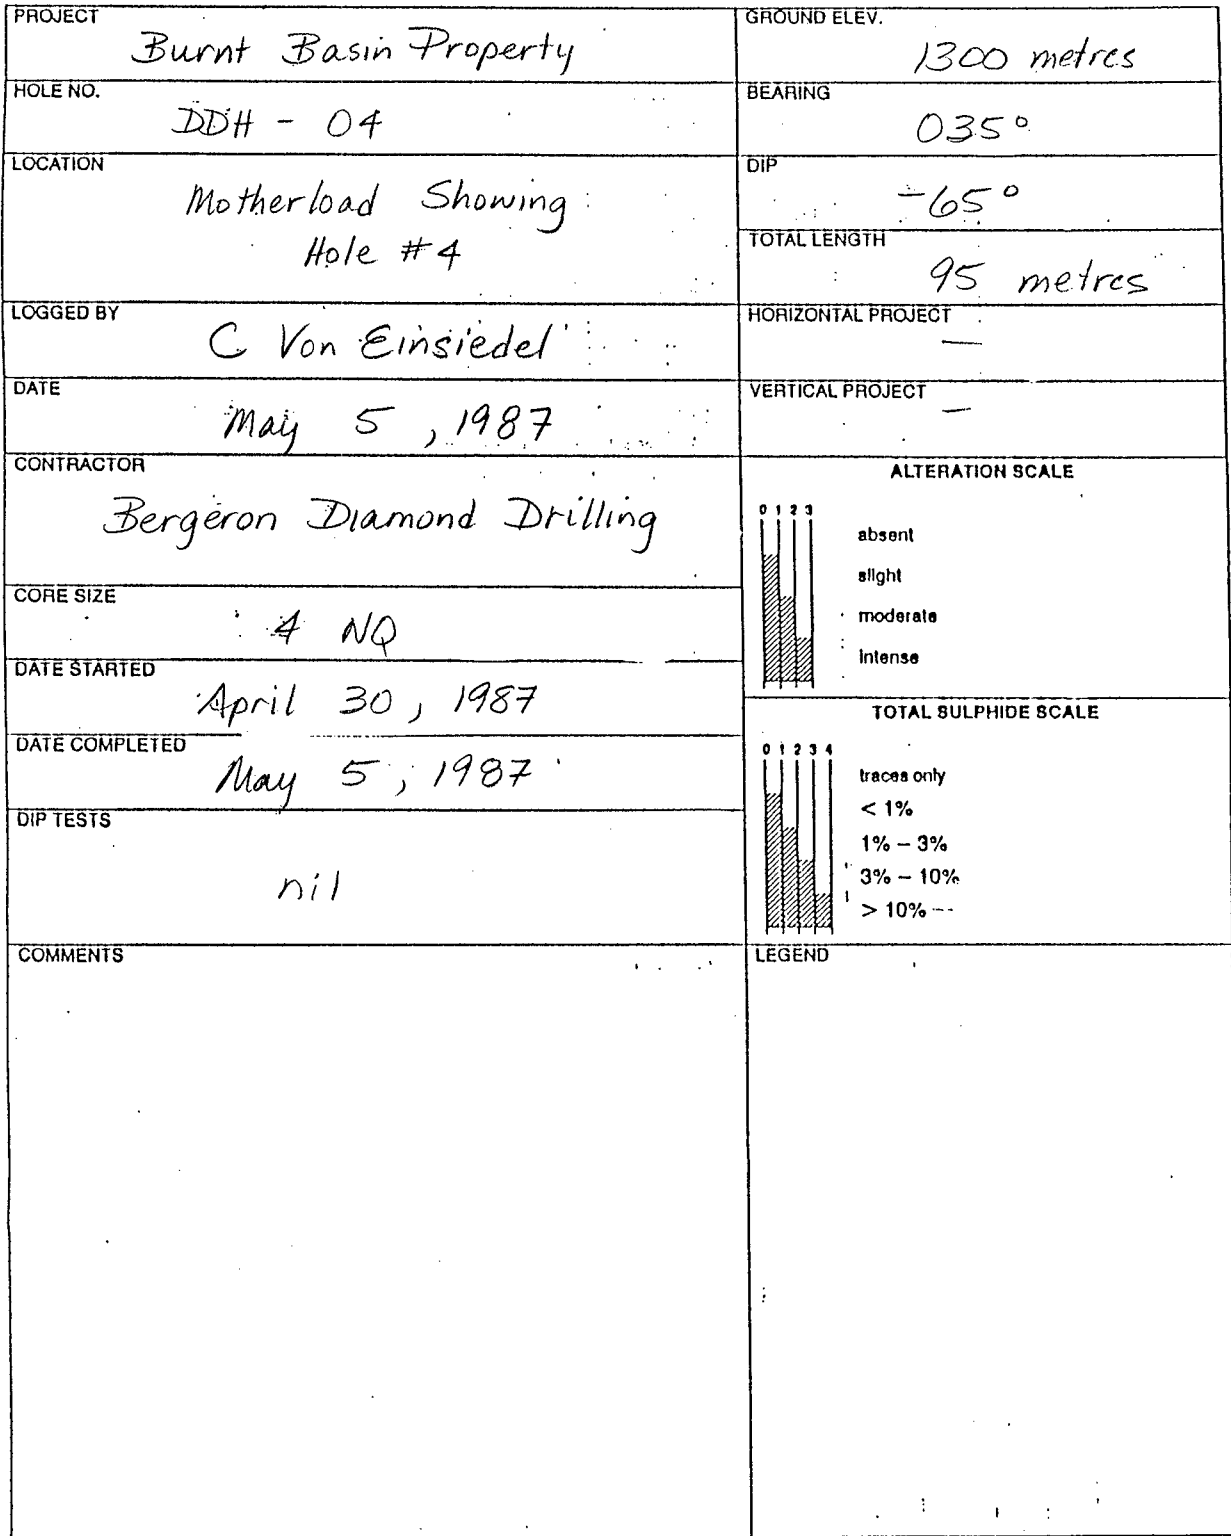 PROJECT
Burnt Basin Property
HOLE NO.
DDH - 04
LOCATION
Motherload Showing
Hole #4
LOGGED BY
C Von Einsiedel
DATE
May 5, 1987
CONTRACTOR
Bergeron Diamond Drilling
CORE SIZE
4 NQ
DATE STARTED
April 30, 1987
DATE COMPLETED
May 5, 1987
DIP TESTS
nil
COMMENTS
GROUND ELEV.
1300 metres
BEARING
035°
DIP
-65°
TOTAL LENGTH
95 metres
HORIZONTAL PROJECT
—
VERTICAL PROJECT
—
ALTERATION SCALE
0 1 2 3
absent
slight
moderate
intense
TOTAL SULPHIDE SCALE
0 1 2 3 4
traces only
< 1%
1% – 3%
3% – 10%
> 10%
LEGEND